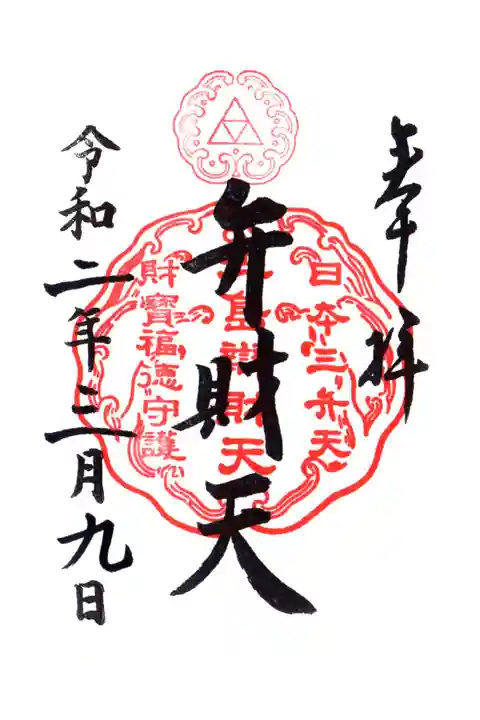 奉拝
日本三弁天
弁財天
島辨財天
財寶福徳守護
令和二年三月九日